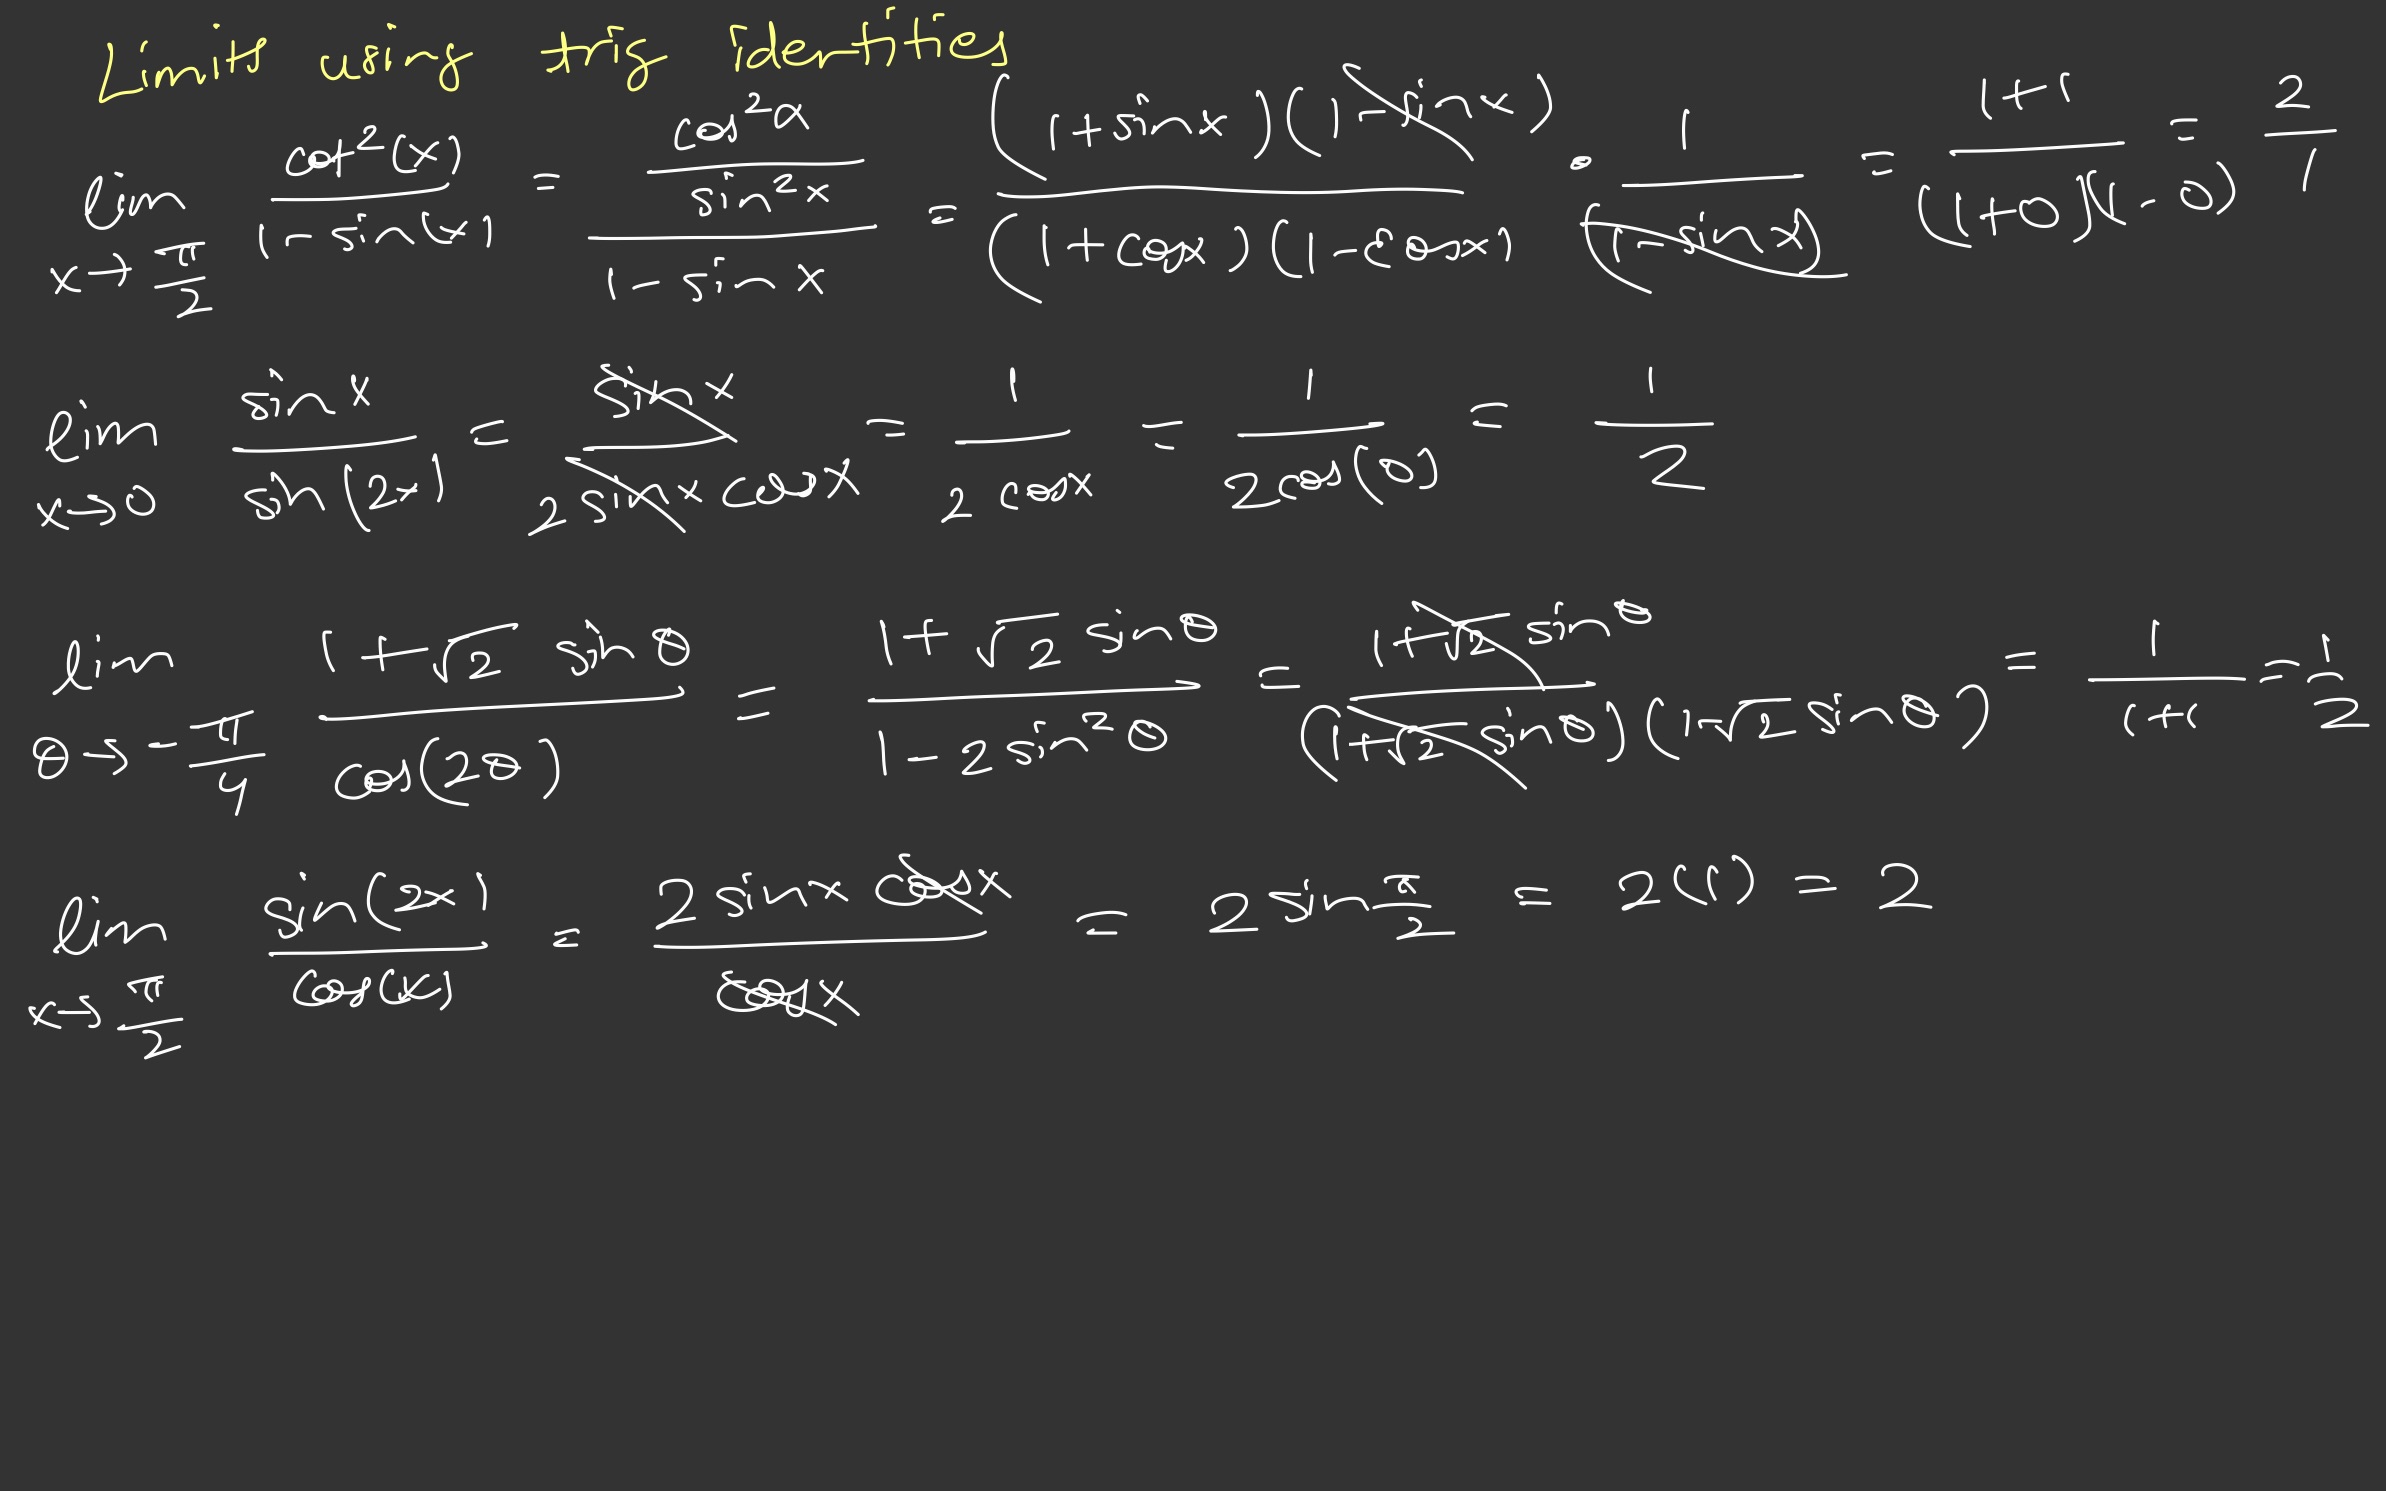 Limits using trig identities
lim x→π/2 cot²(x)/(1-sin(x)) = (cos²x/sin²x)/(1-sin x) = (1+sinx)(1-sinx)/((1+cosx)(1-cosx)) • 1/(1-sinx) = (1+1)/((1+0)(1-0)) = 2/1
lim x→0 sin x/sin(2x) = sin x/(2 sin x cos x) = 1/(2 cos x) = 1/(2cos(0)) = 1/2
lim θ→-π/4 (1+√2 sin θ)/cos(2θ) = (1+√2 sinθ)/(1-2sin²θ) = (1+√2 sinθ)/((1+√2 sinθ)(1-√2 sinθ)) = 1/(1+1) = 1/2
lim x→π/2 sin(2x)/cos(x) = 2 sin x cos x/cos x = 2 sin π/2 = 2(1) = 2